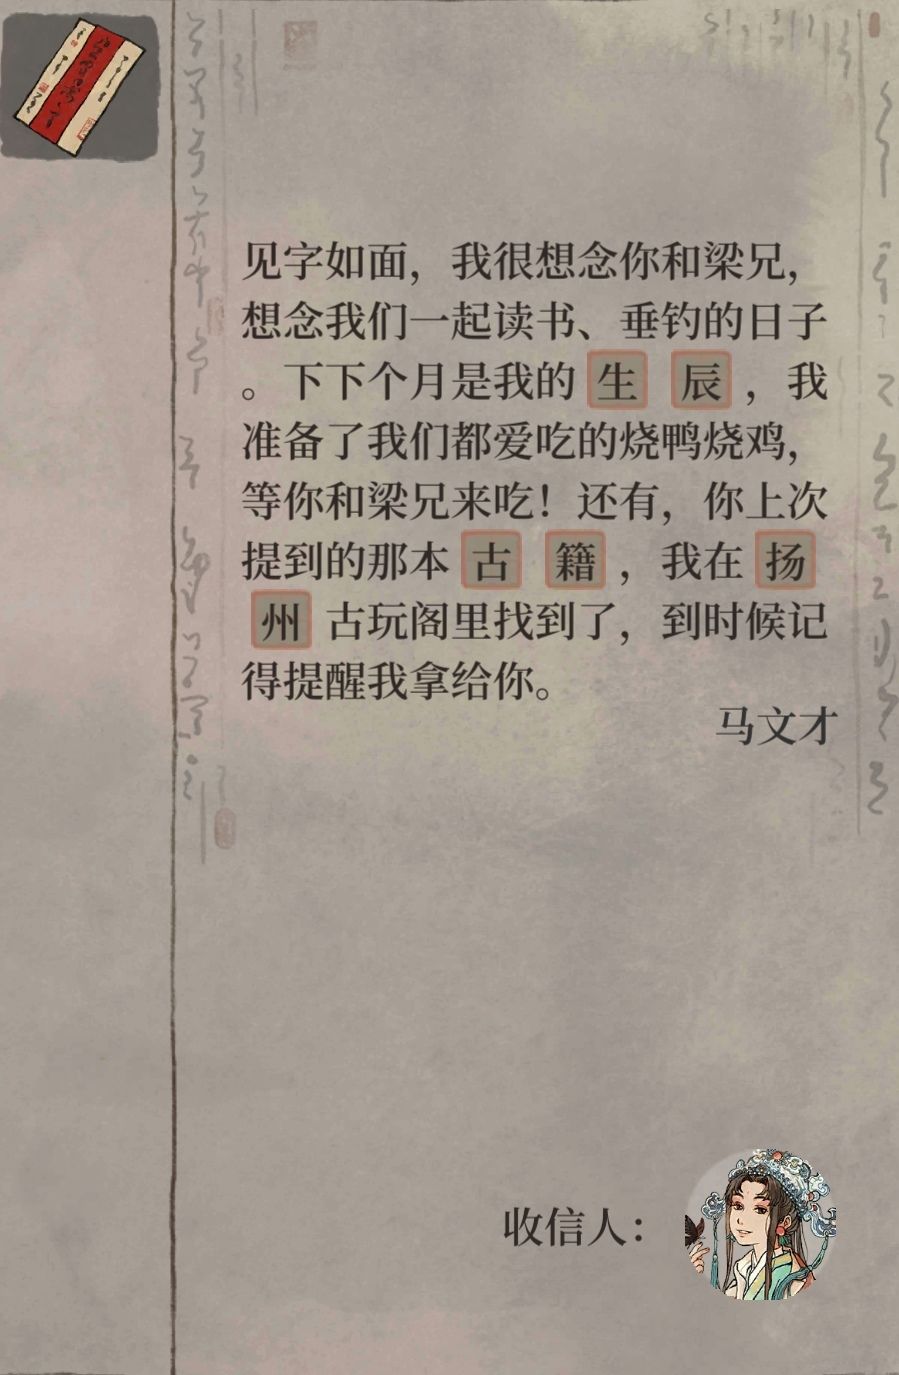 见字如面，我很想念你和梁兄，
想念我们一起读书、垂钓的日子
。下下个月是我的生辰，我
准备了我们都爱吃的烧鸭烧鸡，
等你和梁兄来吃！还有，你上次
提到的那本古籍，我在扬
州古玩阁里找到了，到时候记
得提醒我拿给你。
马文才
收信人：